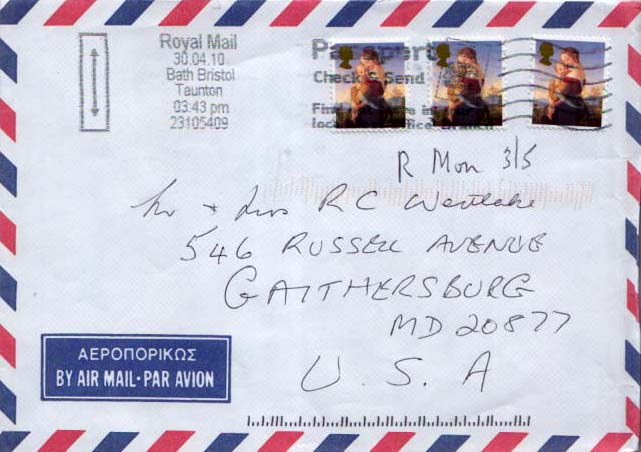 Royal Mail
30.04.10
Bath Bristol
Taunton
03:43 pm
23105409
Passport
Check & Send
Find
R Mon 3/5
Mr + Mrs R C Westlake
546 RUSSELL AVENUE
GAITHERSBURG
MD 20877
U. S. A
ΑΕΡΟΠΟΡΙΚΩΣ
BY AIR MAIL·PAR AVION